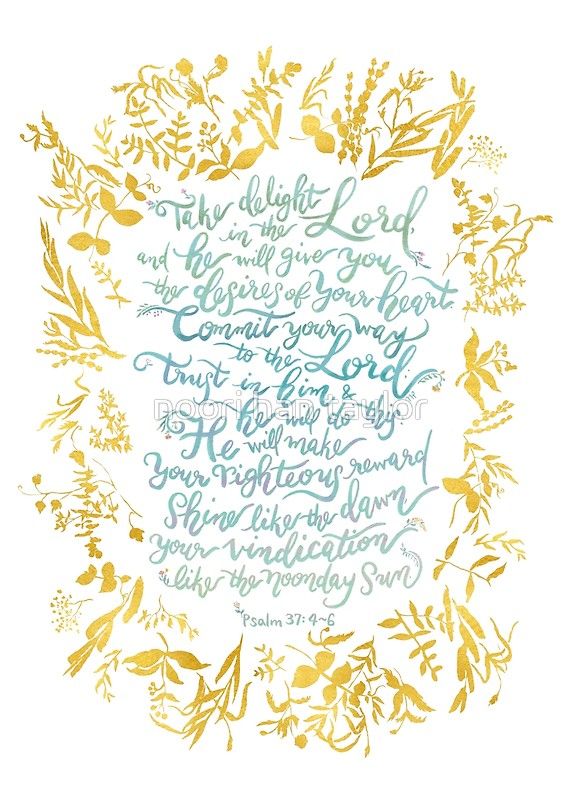 Take delight
in the Lord,
and he will give you
the desires of your heart
Commit your way
to the Lord
trust in him &
he will do this
He will make
your righteous reward
Shine like the dawn
your vindication
like the Noonday Sun.
Psalm 37:4~6
noori han taylor